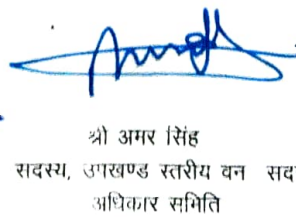 श्री अमर सिंह
सदस्य, उपखण्ड स्तरीय वन सद
अधिकार समिति